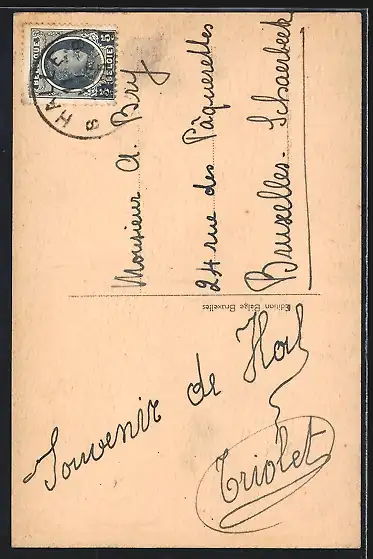 BELGIQUE
BELGIË
15 c
HAL
Monsieur A. Bry
24 rue des Pâquerettes
Bruxelles - Schaerbeek
Edition Belge Bruxelles
Souvenir de Hal
Triolet